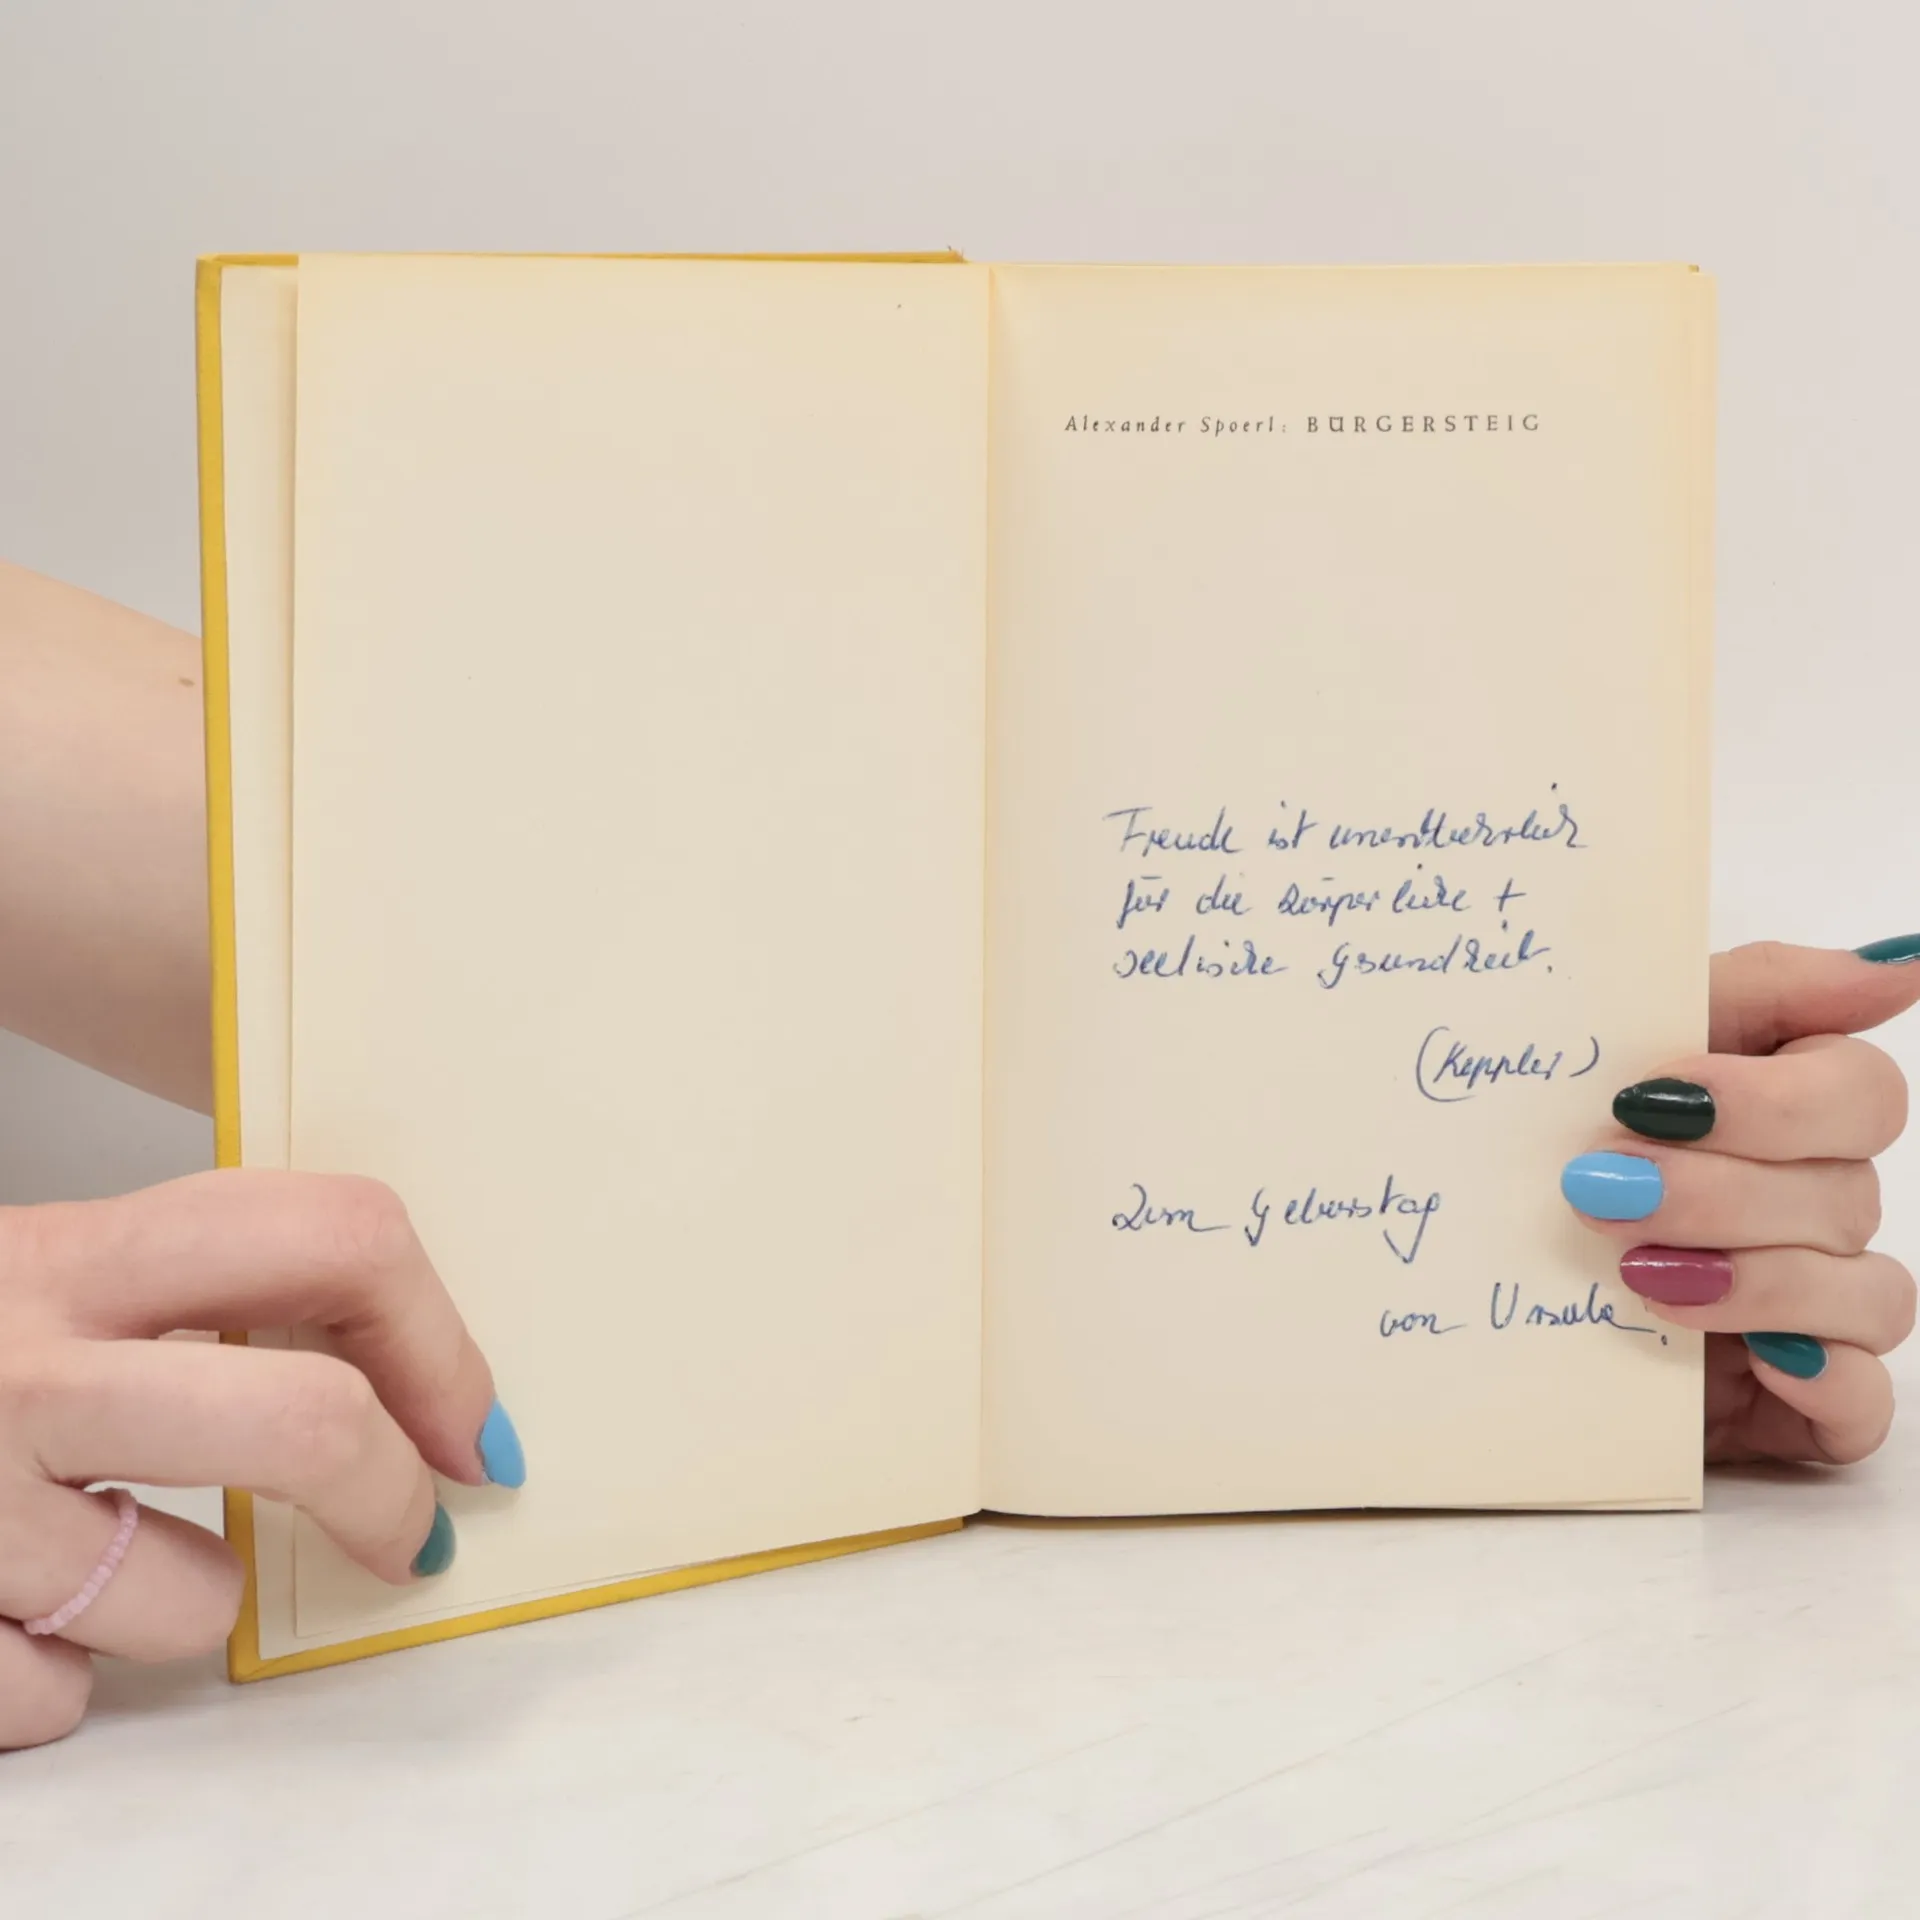 Alexander Spoerl: BÜRGERSTEIG
Freude ist unentbehrlich
für die körperliche +
seelische Gesundheit.
(Keppler)
Zum Geburtstag
von Ursula.